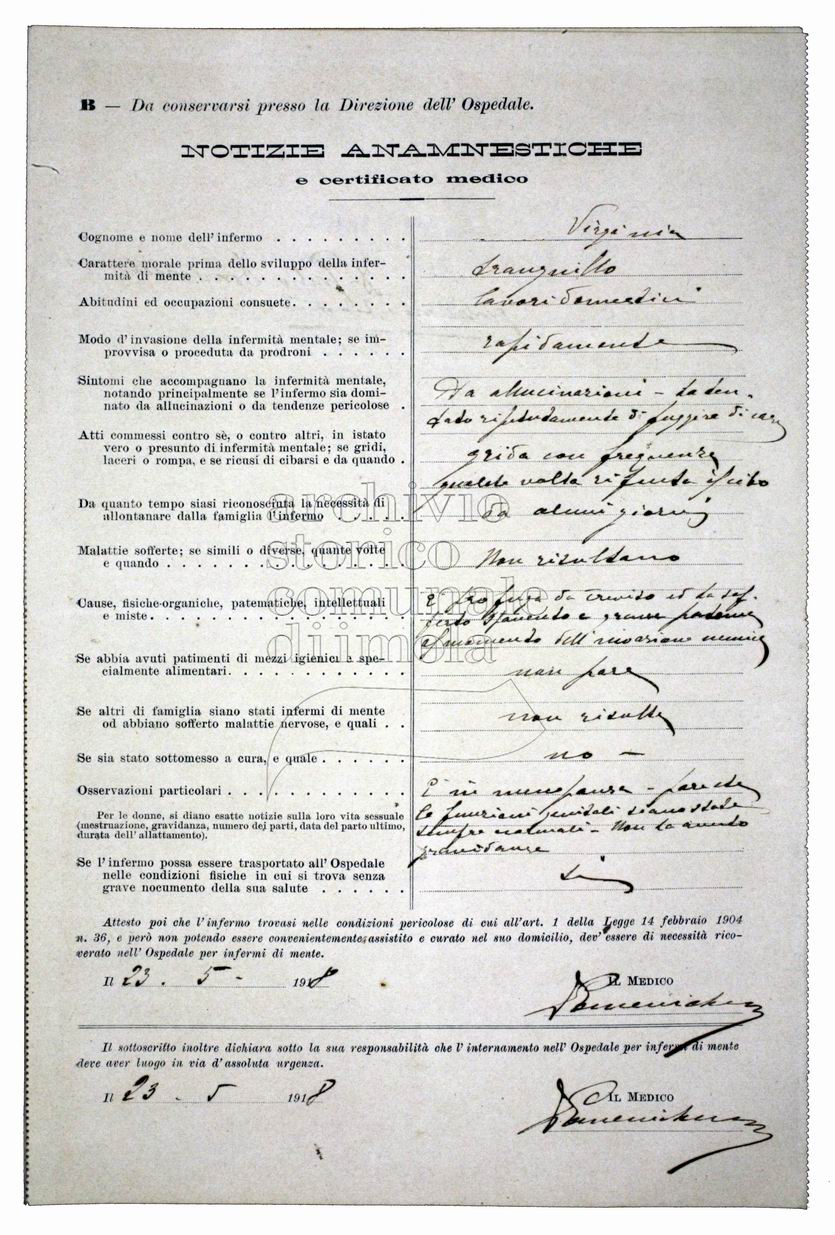 B — Da conservarsi presso la Direzione dell' Ospedale.
NOTIZIE ANAMNESTICHE
e certificato medico
Cognome e nome dell' infermo . . . . . . . . . Virginia
Carattere morale prima dello sviluppo della infer-
mità di mente . . . . . . . . . . . . . tranquillo
Abitudini ed occupazioni consuete. . . . . . . . lavori domestici
Modo d' invasione della infermità mentale; se im-
provvisa o proceduta da prodroni . . . . . . rapidamente
Sintomi che accompagnano la infermità mentale,
notando principalmente se l' infermo sia domi-
nato da allucinazioni o da tendenze pericolose .
Ha allucinazioni - ha ten-
tato ripetutamente di fuggire di casa
Atti commessi contro sè, o contro altri, in istato
vero o presunto di infermità mentale; se gridi,
laceri o rompa, e se ricusi di cibarsi e da quando .
grida con frequenza
qualche volta rifiuta il cibo
Da quanto tempo siasi riconosciuta la necessità di
allontanare dalla famiglia l' infermo . . . . . da alcuni giorni
Malattie sofferte; se simili o diverse, quante volte
e quando . . . . . . . . . . . . . . . Non risultano
Cause, fisiche-organiche, patematiche, intellettuali
e miste. . . . . . . . . . . . . . . .
È profuga da Treviso ed ha sof-
ferto spavento e grave
al momento dell' invasione nemica
Se abbia avuti patimenti di mezzi igienici e spe-
cialmente alimentari. . . . . . . . . . . non pare
Se altri di famiglia siano stati infermi di mente
od abbiano sofferto malattie nervose, e quali . . non risulta
Se sia stato sottomesso a cura, e quale . . . . . . no —
Osservazioni particolari . . . . . . . . . . . .
Per le donne, si diano esatte notizie sulla loro vita sessuale
(mestruazione, gravidanza, numero dei parti, data del parto ultimo,
durata dell' allattamento).
È in menopausa - pare che
le funzioni genitali siano state
sempre normali - Non ha avuto
gravidanze
Se l' infermo possa essere trasportato all' Ospedale
nelle condizioni fisiche in cui si trova senza
grave nocumento della sua salute . . . . . . si
Attesto poi che l' infermo trovasi nelle condizioni pericolose di cui all' art. 1 della Legge 14 febbraio 1904
n. 36, e però non potendo essere convenientemente assistito e curato nel suo domicilio, dev' essere di necessità rico-
verato nell' Ospedale per infermi di mente.
Il 23 . 5 - 1918 IL MEDICO
Il sottoscritto inoltre dichiara sotto la sua responsabilità che l' internamento nell' Ospedale per infermi di mente
deve aver luogo in via d' assoluta urgenza.
Il 23 . 5 1918 IL MEDICO
archivio
storico
comunale
di imola